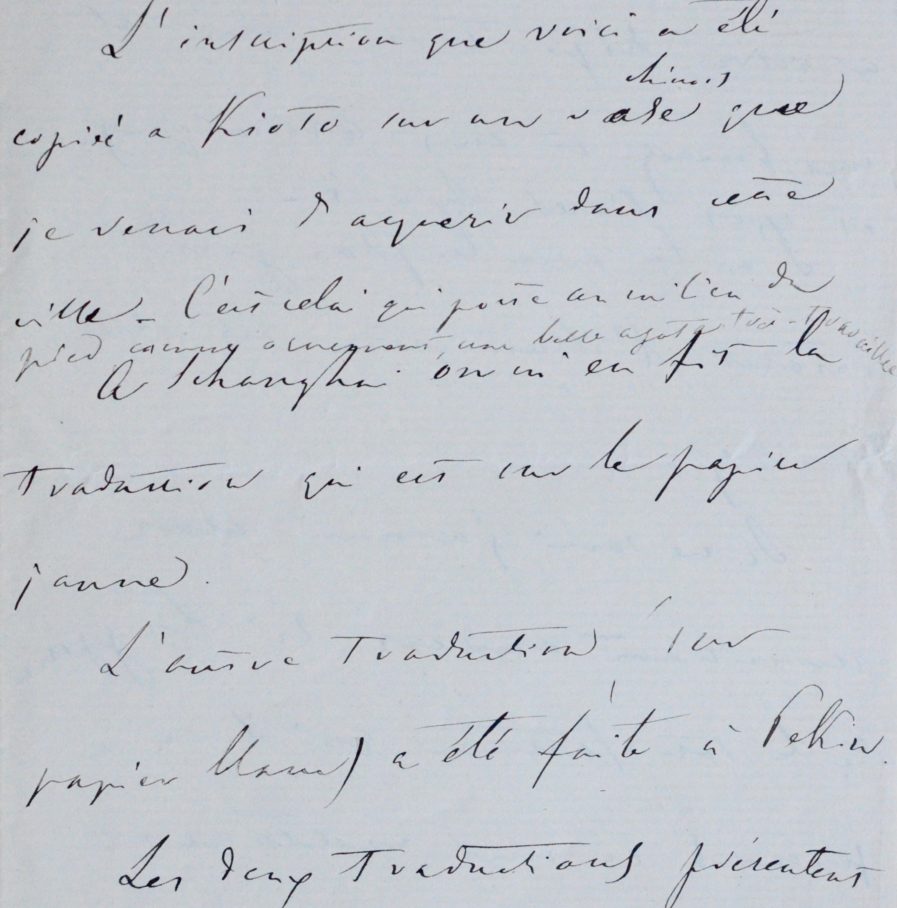 L'inscription que voici a été
chinois
copiée a Kioto sur un vase que
je venais d'acquerir dans cette
ville – C'est celui qui porte au milieu du
pied comme ornement, une belle agate très-travaillée
A Schanghai on m'en fit la
traduction qui est sur le papier
jaune.
L'autre traduction (sur
papier blanc) a été faite à Pekin.
Les deux traductions présentent